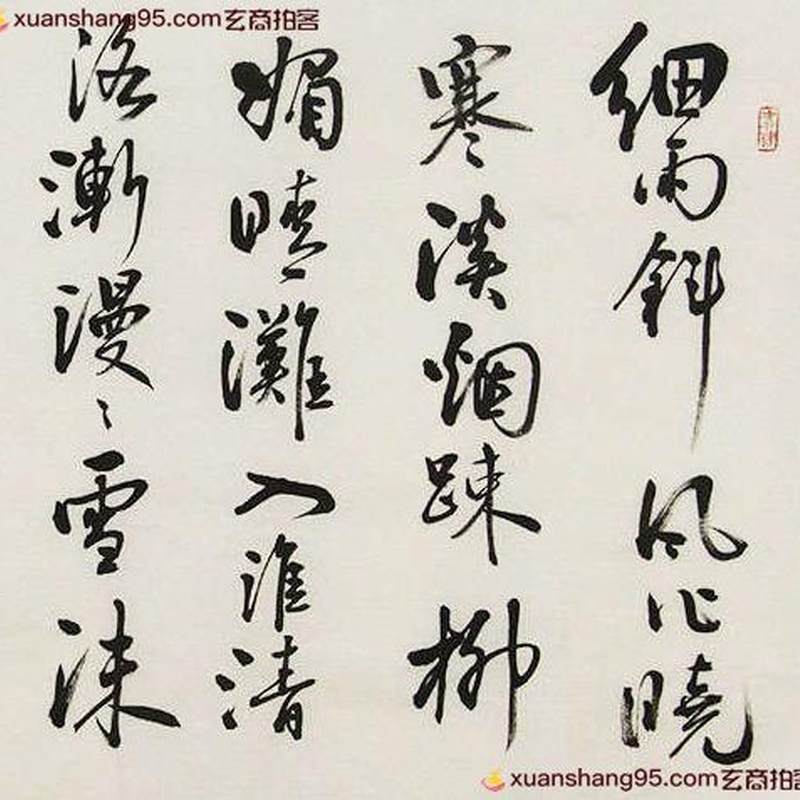 xuanshang95.com玄商拍客
細雨斜風作曉
寒淡烟踈柳
媚晴灘入淮清
洛漸漫〻雪沫
xuanshang95.com玄商拍客